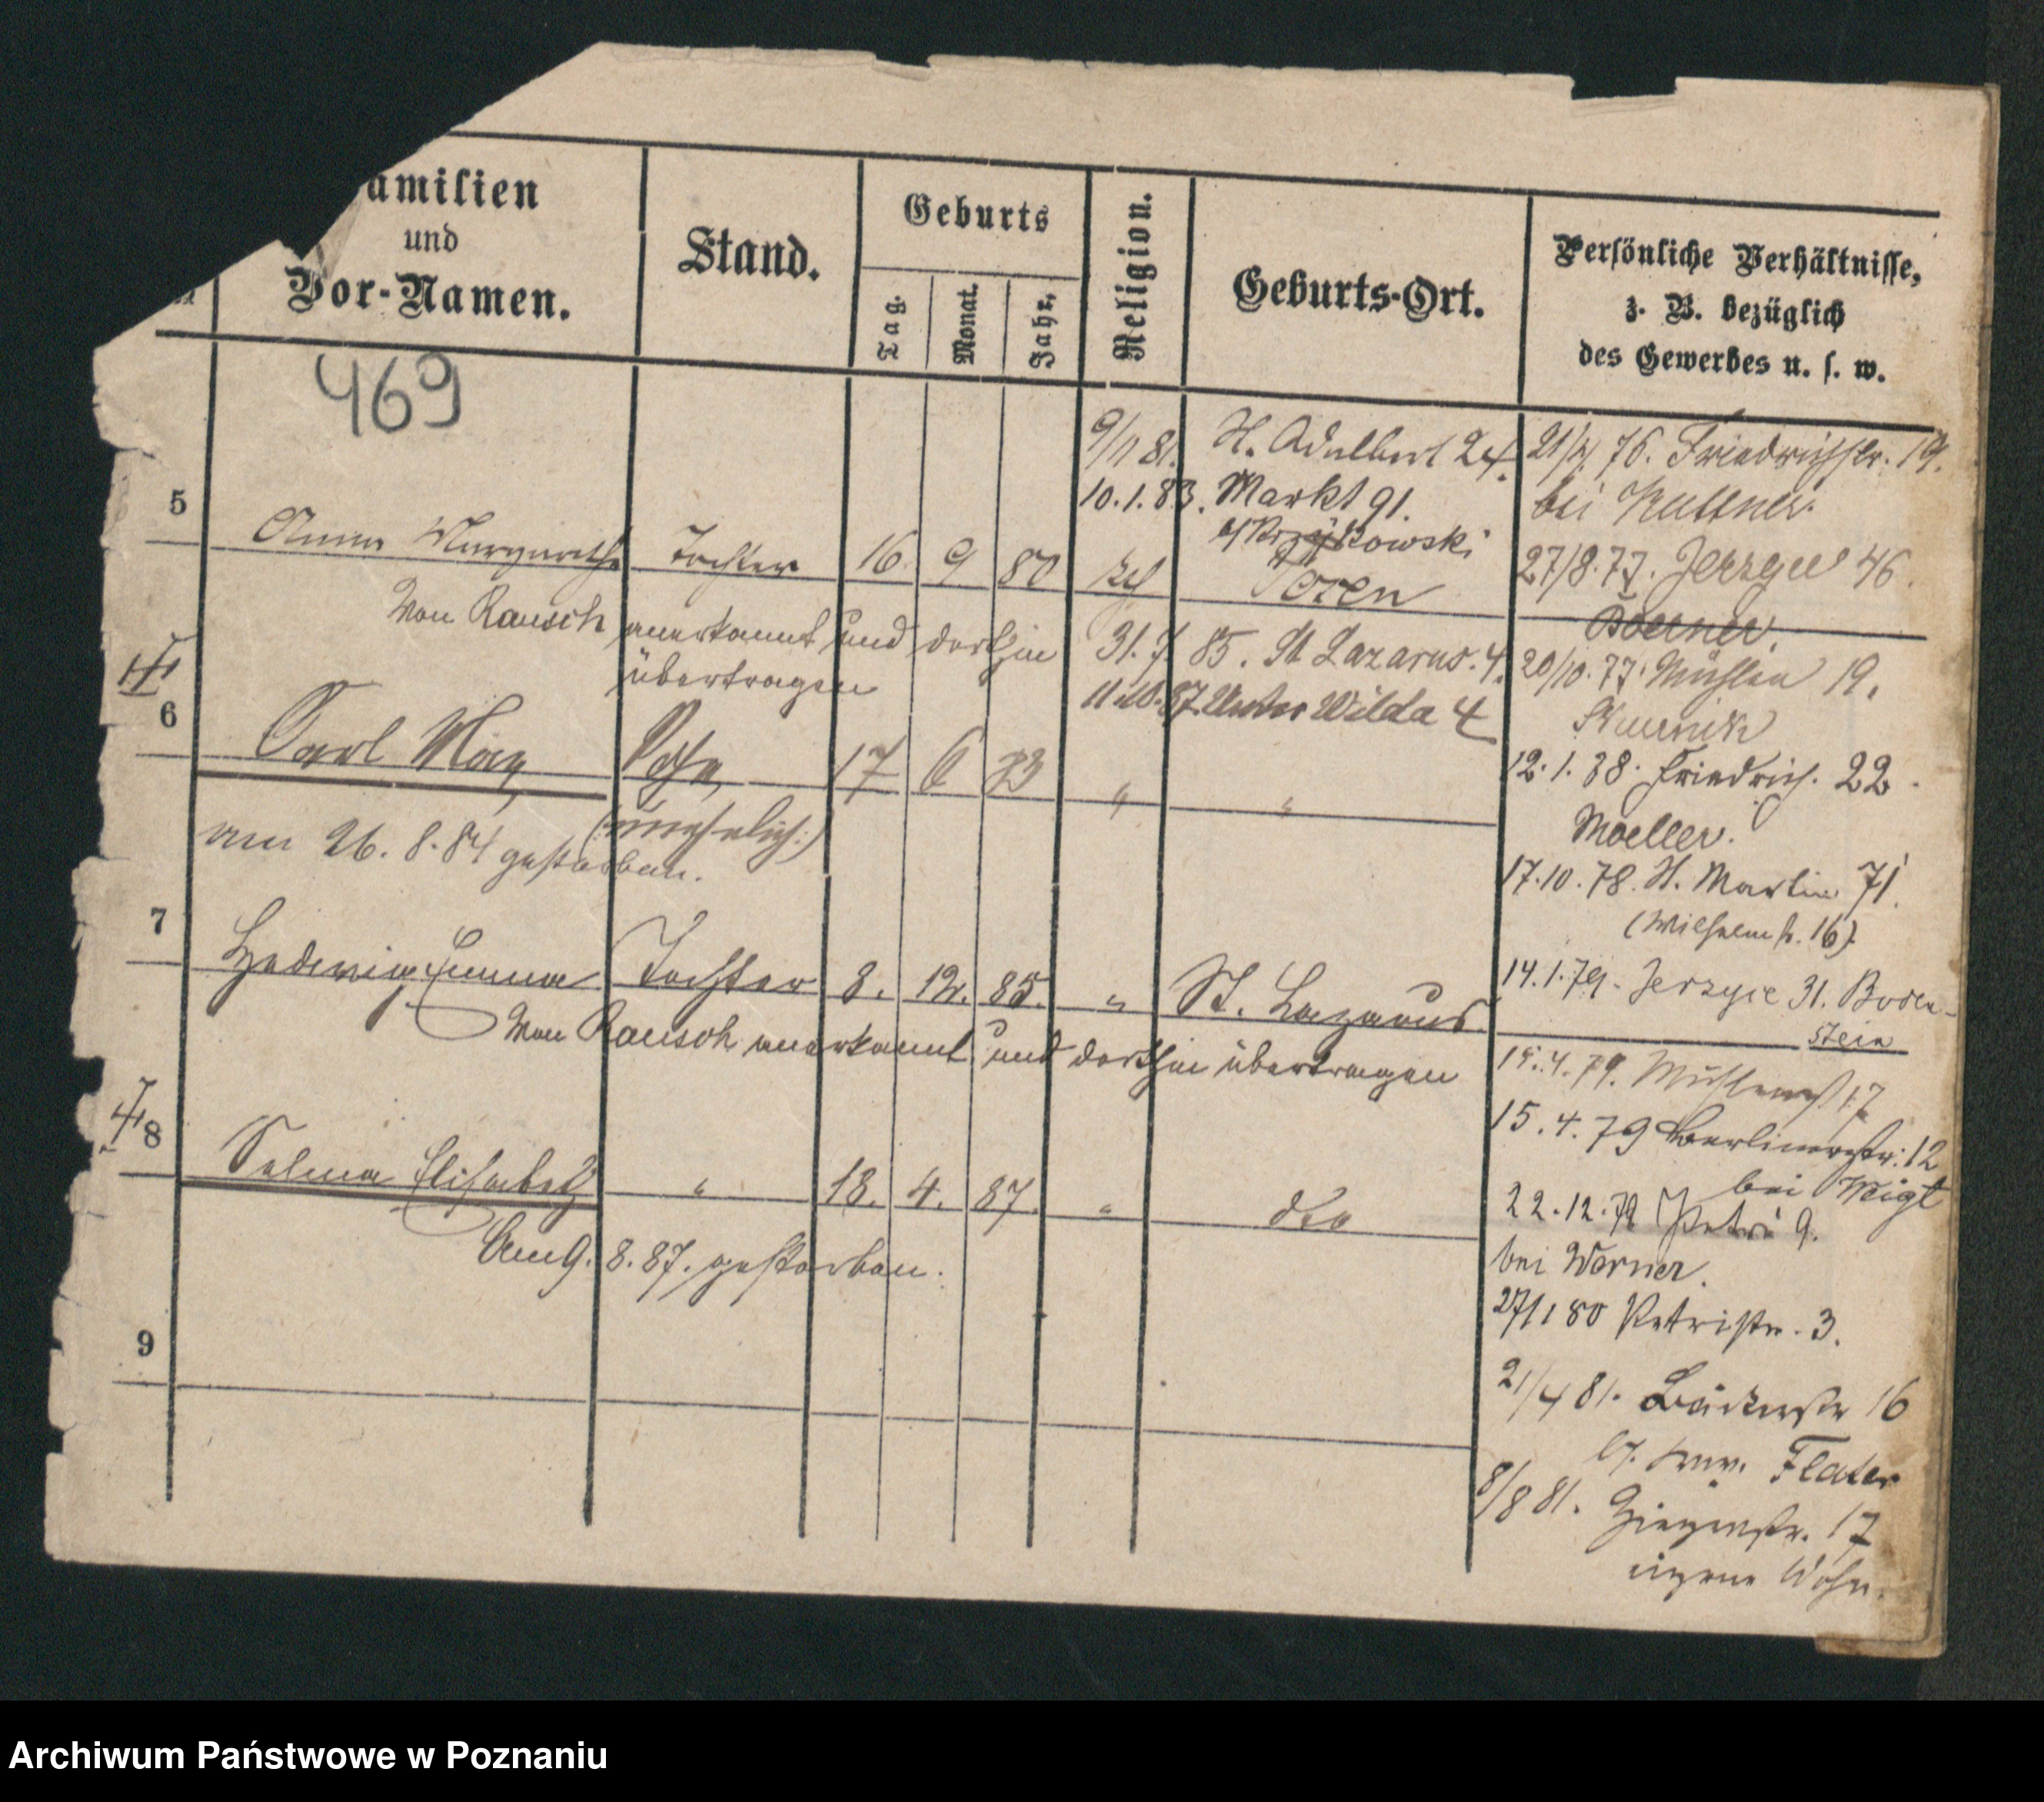 amilien
und
Vor-Namen.
Stand.
Geburts
Tag.
Monat.
Jahr.
Religion.
Geburts-Ort.
Persönliche Verhältnisse,
z. B. bezüglich
des Gewerbes u. s. w.
469
5
Anna Margarethe Tochter 16. 9 80 Posen
von Rausch anerkannt und dorthin
übertragen
6
Carl Max Sohn 17 6 83 " "
(unehelich:)
am 26. 8. 84 gestorben.
7
Hedwig Emma Tochter 8. 12. 85. " St. Lazarus.
Von Rausch anerkannt und dorthin übertragen
8
Selma Elisabeth " 18. 4. 87. " dto
Am 9. 8. 87. gestorben.
9
9/11 81. St. Adalbert 24.
10. 1. 83. Markt 91.
31. 7. 85. St Lazarus. 4.
11. 10. 87. Unter Wilda 4
21/4. 76. Friedrichstr. 19.
bei Kuttner.
27/8. 77. Jerzyce 46.
Boerner.
20/10. 77. Mühlen 19.
12. 1. 38. Friedrich. 22.
Moeller.
17. 10. 78. St. Martin 71.
(Wilhelmstr. 16).
14. 1. 79. Jerzyce 31. Boden-
stein
15. 4. 79. Mühlenstr 17
15. 4. 79 Berlinerstr. 12
bei Weigt
22. 12. 79 Petri 9.
bei Werner.
27/1 80 Petristr. 3.
21/4 81. Bäckerstr 16
Flater
8/8 81. Ziegenstr. 17
eigene Wohn.
Archiwum Państwowe w Poznaniu